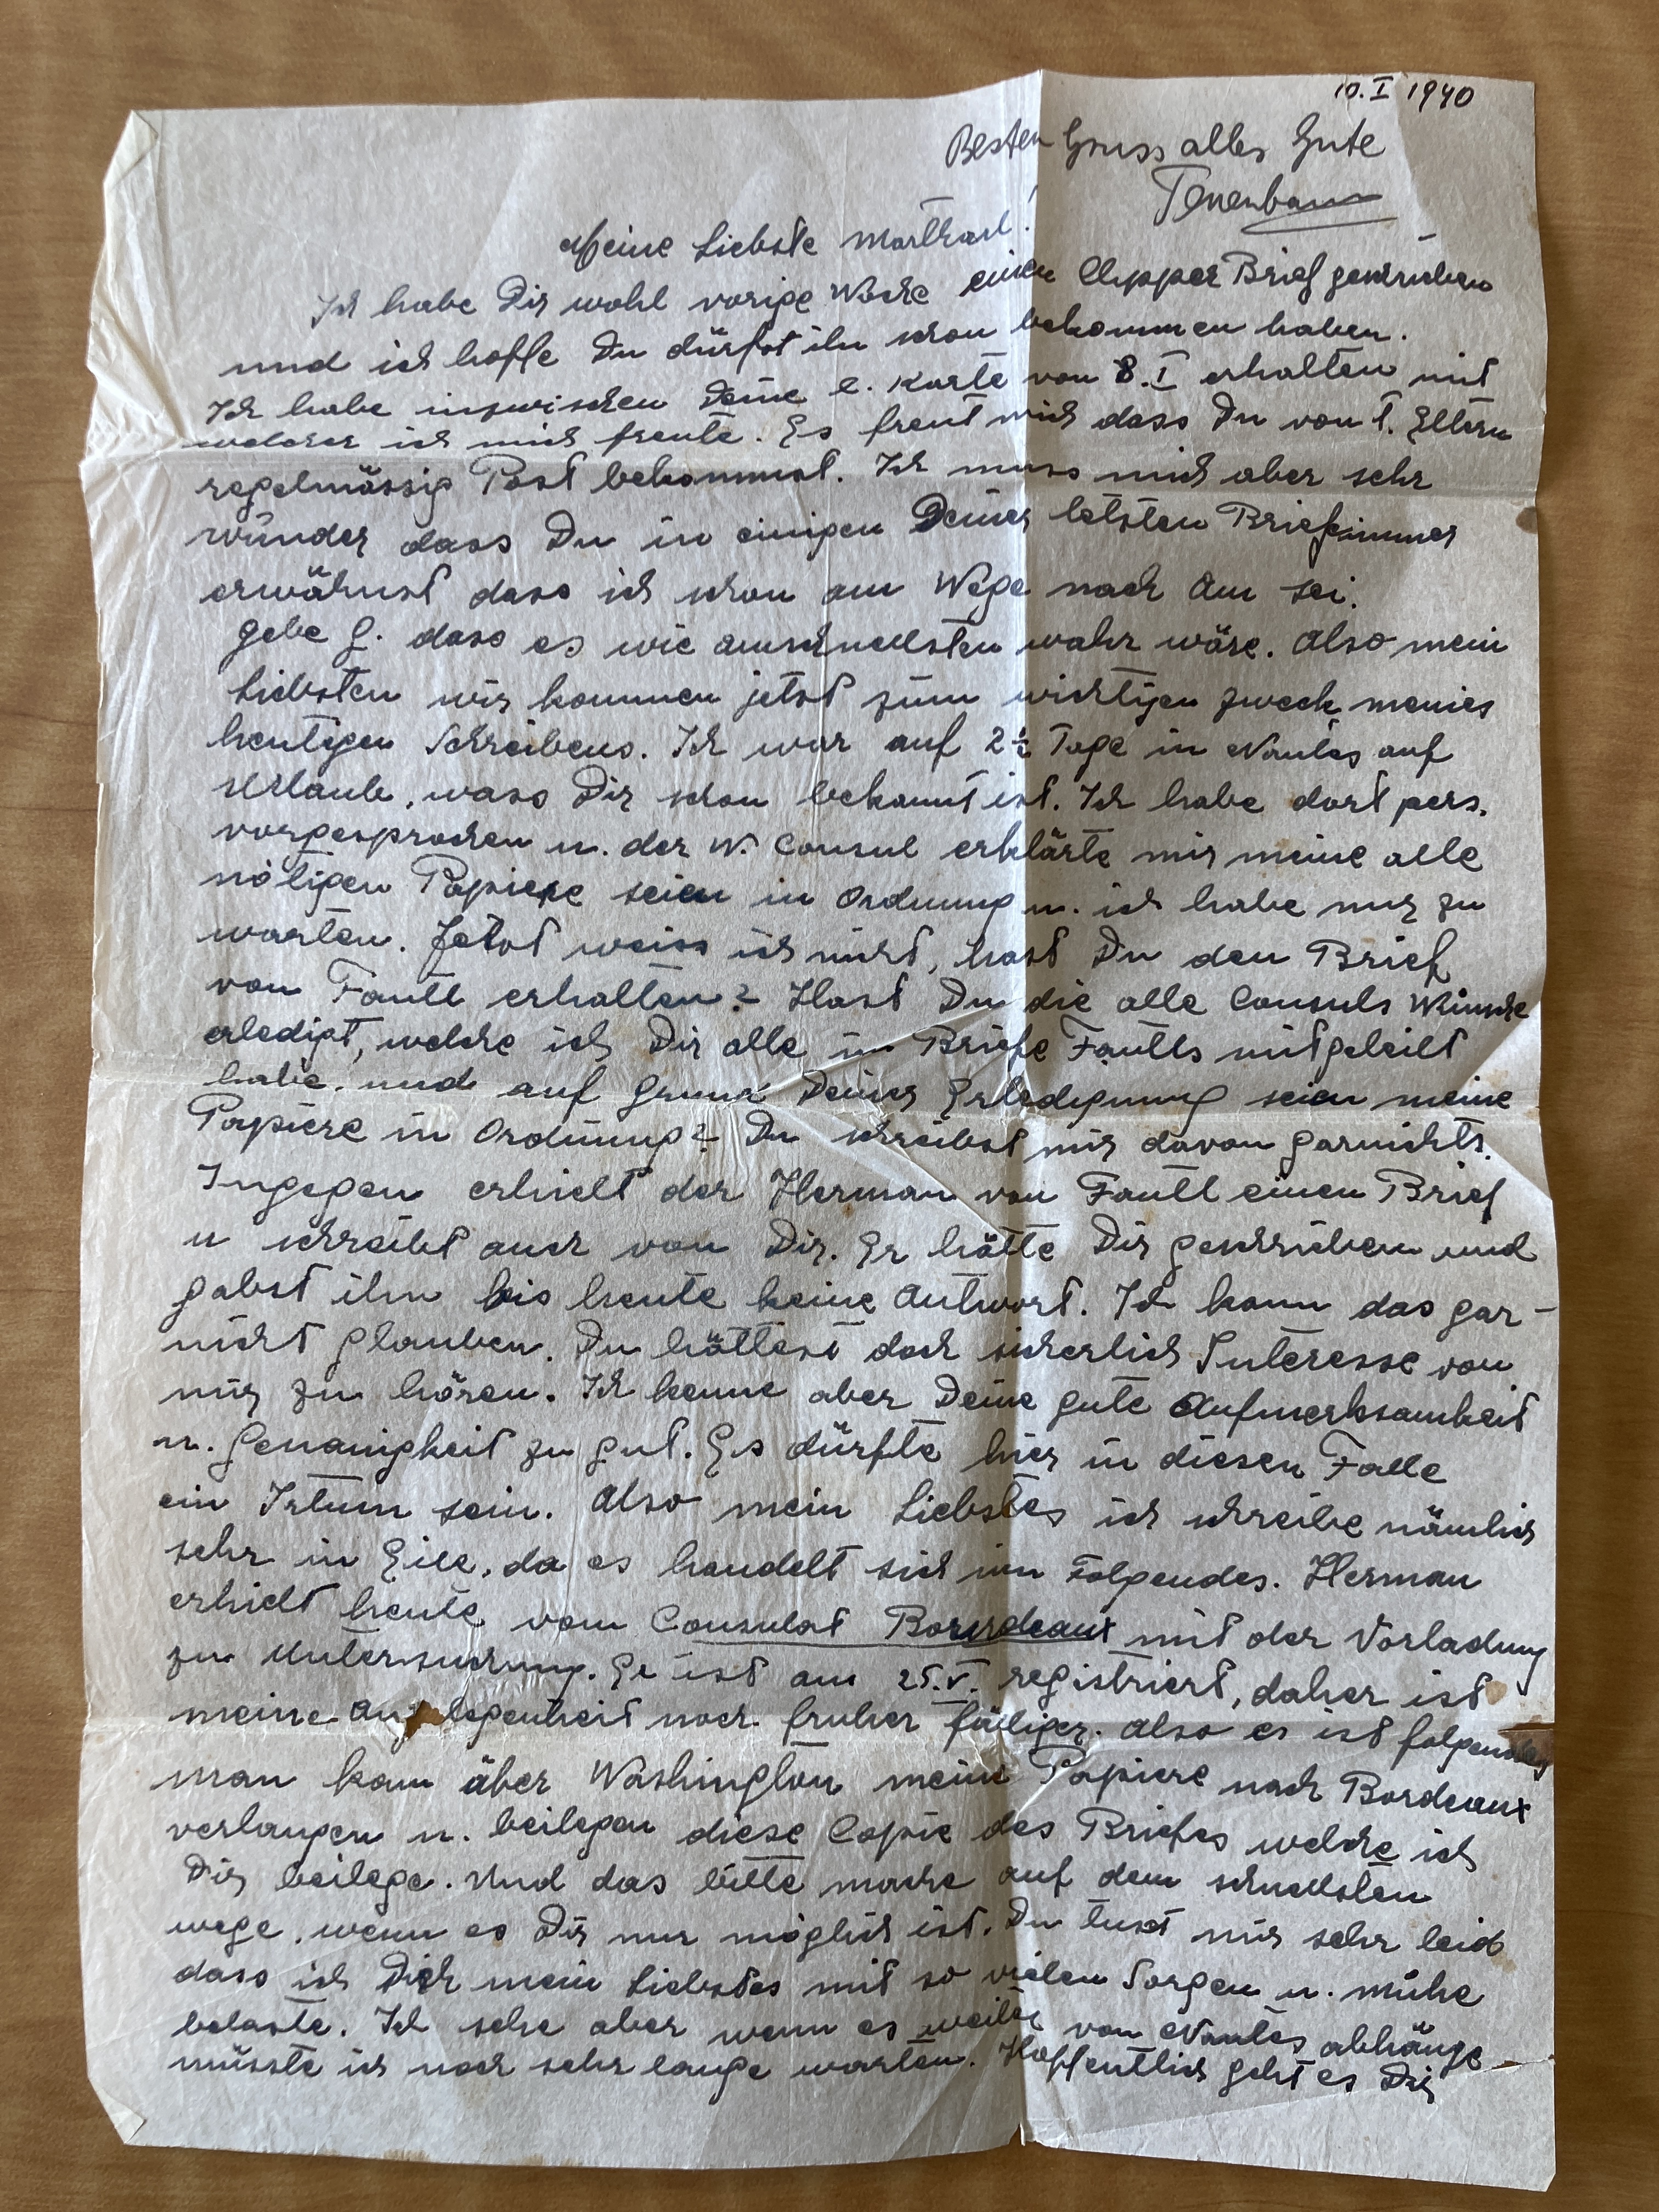 10. I 1940
Besten Gruss alles Gute
Tenenbaum
Meine Liebste Marthael!
Ich habe Dir wohl vorige Woche einen Clipper Brief geschrieben
und ich hoffe Du dürfst ihn schon bekommen haben.
Ich habe inzwischen Deine l. Karte von 8. I erhalten mit
welcher ich mich freute. Es freut mich dass Du von l. Eltern
regelmässig Post bekommst. Ich muss mich aber sehr
wunder dass Du in einigen Deiner letzten Brief immer
erwähnst dass ich schon am Wege nach Am sei.
Gebe G. dass es wie amschnellsten wahr wäre. Also mein
Liebsten wir kommen jetzt zum wichtigen Zweck meines
heutigen Schreibens. Ich war auf 2½ Tage in Nantes auf
Urlaub, wass Dir schon bekannt ist. Ich habe dort pers.
vorgesprochen u. der W. Consul erklärte mir meine alle
nötigen Papiere seien in Ordnung u. ich habe nur zu
warten. Jetzt weiss ich nicht, hast Du den Brief
von Fantl erhalten? Hast Du die alle Consuls Wünsche
erledigt, welche ich Dir alle im Briefe Fantls mitgeteilt
habe, und auf Grund Deiner Erledigung seien meine
Papiere in Ordnung? Du schreibst mir davon garnichts.
Ingegen erhielt der Herman von Fantl einen Brief
u schreibt auch von Dir. Er hätte Dir geschrieben und
gabst ihm bis heute keine Antwort. Ich kann das gar-
nicht glauben. Du hättest doch sicherlich Interesse von
mir zu hören. Ich kenne aber Deine gute Aufmerksamkeit
u. Genauigkeit zu gut. Es dürfte hier in diesen Falle
ein Irtum sein. Also mein Liebstes ich schreibe nämlich
sehr in Eile, da es handelt sich um Folgendes. Herman
erhielt heute vom Consulat Bordeaux mit der Vorladung
zur Untersuchung. Er ist am 25. V. registriert, daher ist
meine Angelegenheit noch fruher fälliger. Also es ist folgendes
man kann über Washington meine Papiere nach Bordeaux
verlangen u. beilegen diese Copie des Briefes welche ich
Dir beilege. Und das bitte mache auf dem schnellsten
wege, wenn es Dir nur möglich ist. Du tust mir sehr leid
dass ich Dich mein Liebstes mit so vielen Sorgen u. mühe
belaste. Ich sehe aber wenn es weiter von Nantes abhänge
müsste ich noch sehr lange warten. Hoffentlich geht es Dir